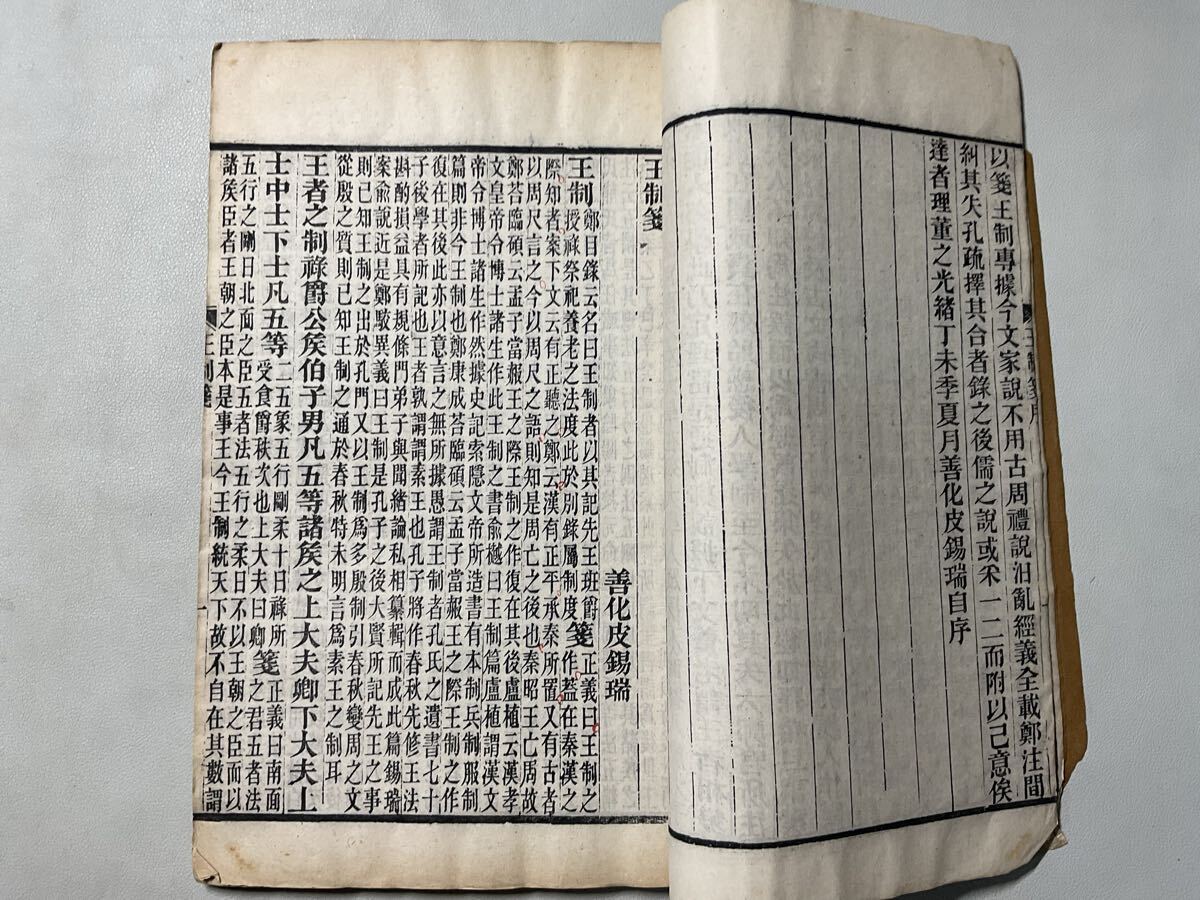 王制箋序
以箋王制專據今文家說不用古周禮說汨亂經義全載鄭注間
糾其失孔疏擇其合者錄之後儒之說或采一二而附以己意俟
達者理董之光緒丁未季夏月善化皮錫瑞自序
王制箋
善化皮錫瑞
王制鄭目錄云名曰王制者以其記先王班爵
授祿祭祀養老之法度此於別錄屬制度箋正義曰王制之
作蓋在秦漢之
際知者案下文云有正聽之鄭云漢有正平承秦所置又有古者
以周尺言之今以周尺之語則知是周亡之後也秦昭王亡周故
鄭荅臨碩云孟子當赧王之際王制之作復在其後盧植云漢孝
文皇帝令博士諸生作此王制之書俞樾曰王制篇盧植謂漢文
帝令博士諸生作然據史記索隱文帝所造書有本制兵制服制
篇則非今王制也鄭康成荅臨碩云孟子當赧王之際王制之作
復在其後此亦以意言之無所據愚謂王制者孔氏之遺書七十
子後學者所記也王者孰謂謂素王也孔子將作春秋先修王法
斟酌損益具有規條門弟子與聞緒論私相纂輯而成此篇錫瑞
案俞說近是鄭駁異義曰王制是孔子之後大賢所記先王之事
則已知王制之出於孔門又以王制爲多殷制引春秋變周之文
從殷之質則已知王制之通於春秋特未明言爲素王之制耳
王者之制祿爵公矦伯子男凡五等諸矦之上大夫卿下大夫上
士中士下士凡五等二五象五行剛柔十日祿所
受食爵秩次也上大夫曰卿箋正義曰南面
之君五者法
五行之剛日北面之臣五者法五行之柔日不以王朝之臣而以
諸矦臣者王朝之臣本是事王今王制統天下故不自在其數謂
王制箋 一